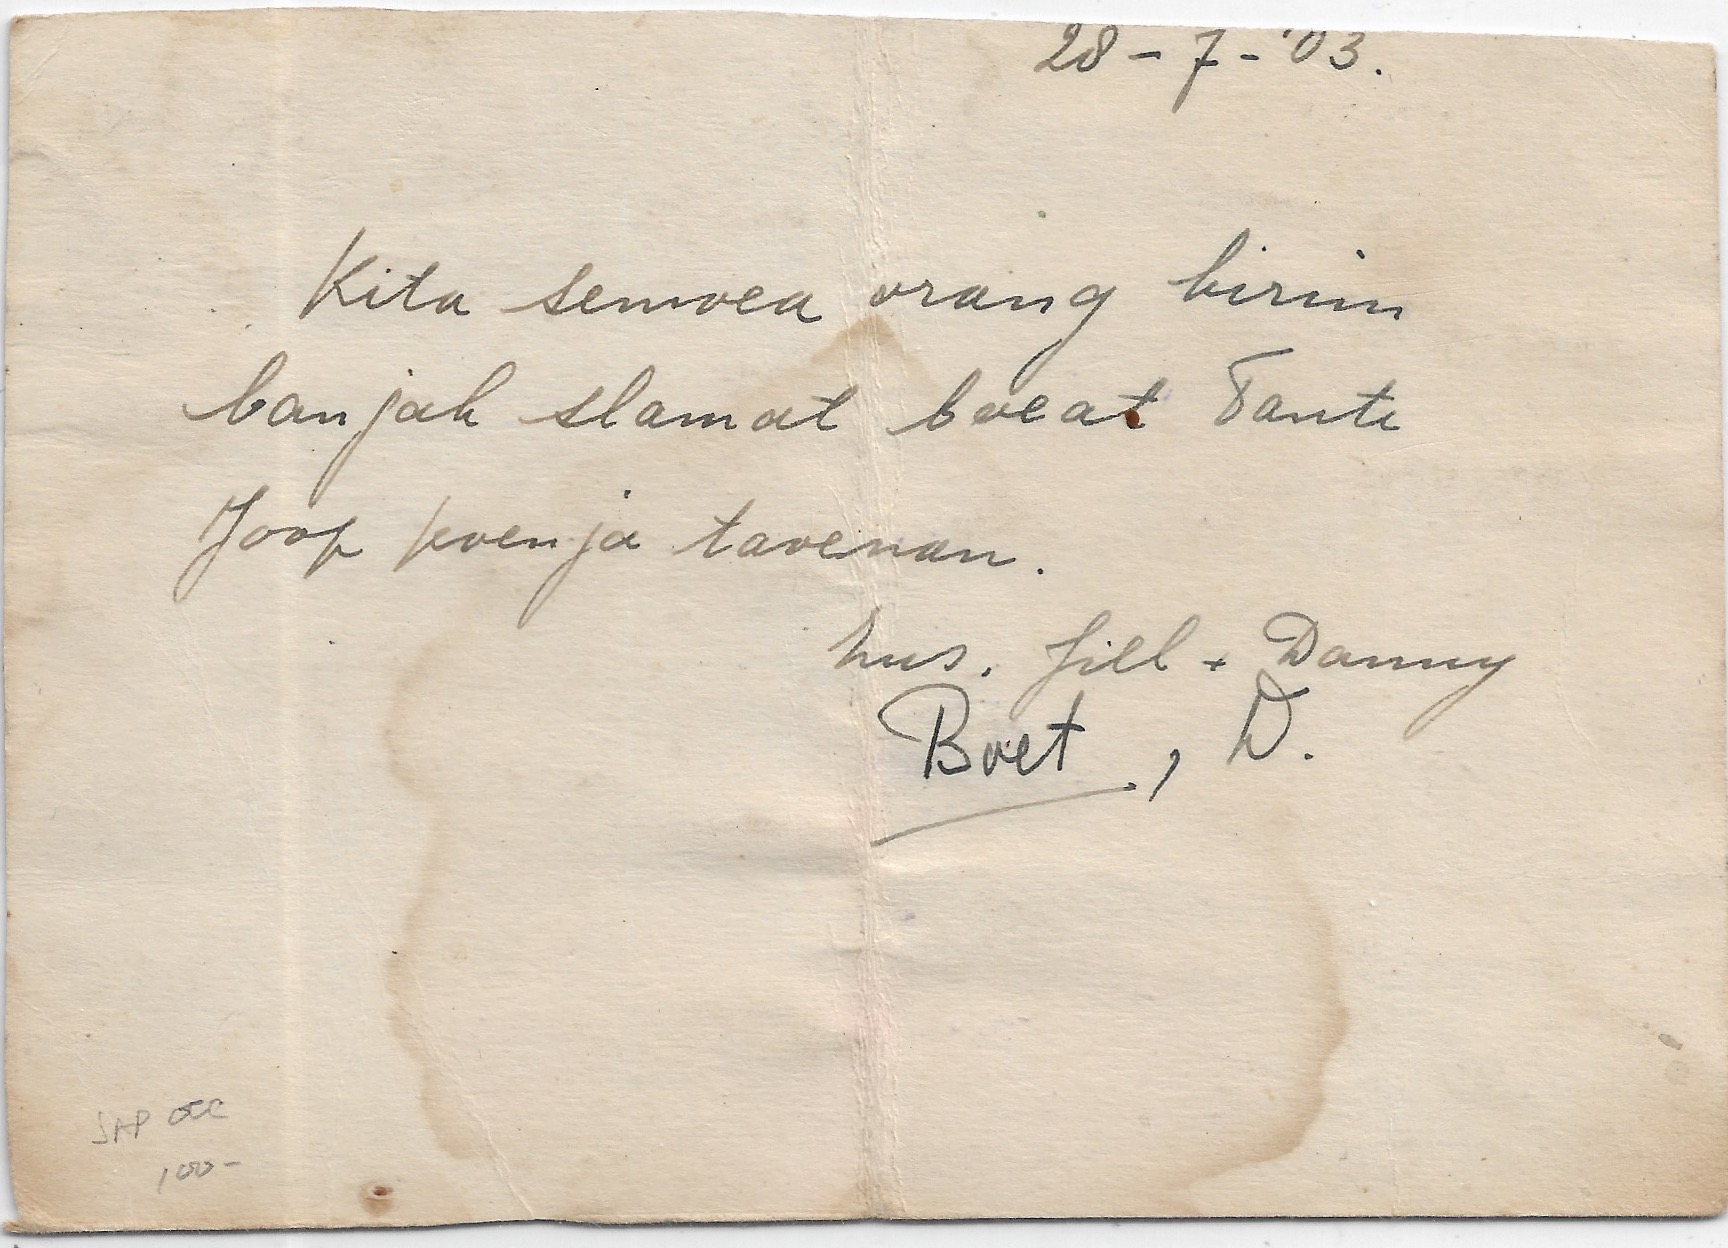 28 - 7 - '03.
Kita semoea orang kirim
banjak slamat boeat Tante
Joop poenja taoenan.
Lus. Jill + Danny
Boet, D.
JAP OCC
100-